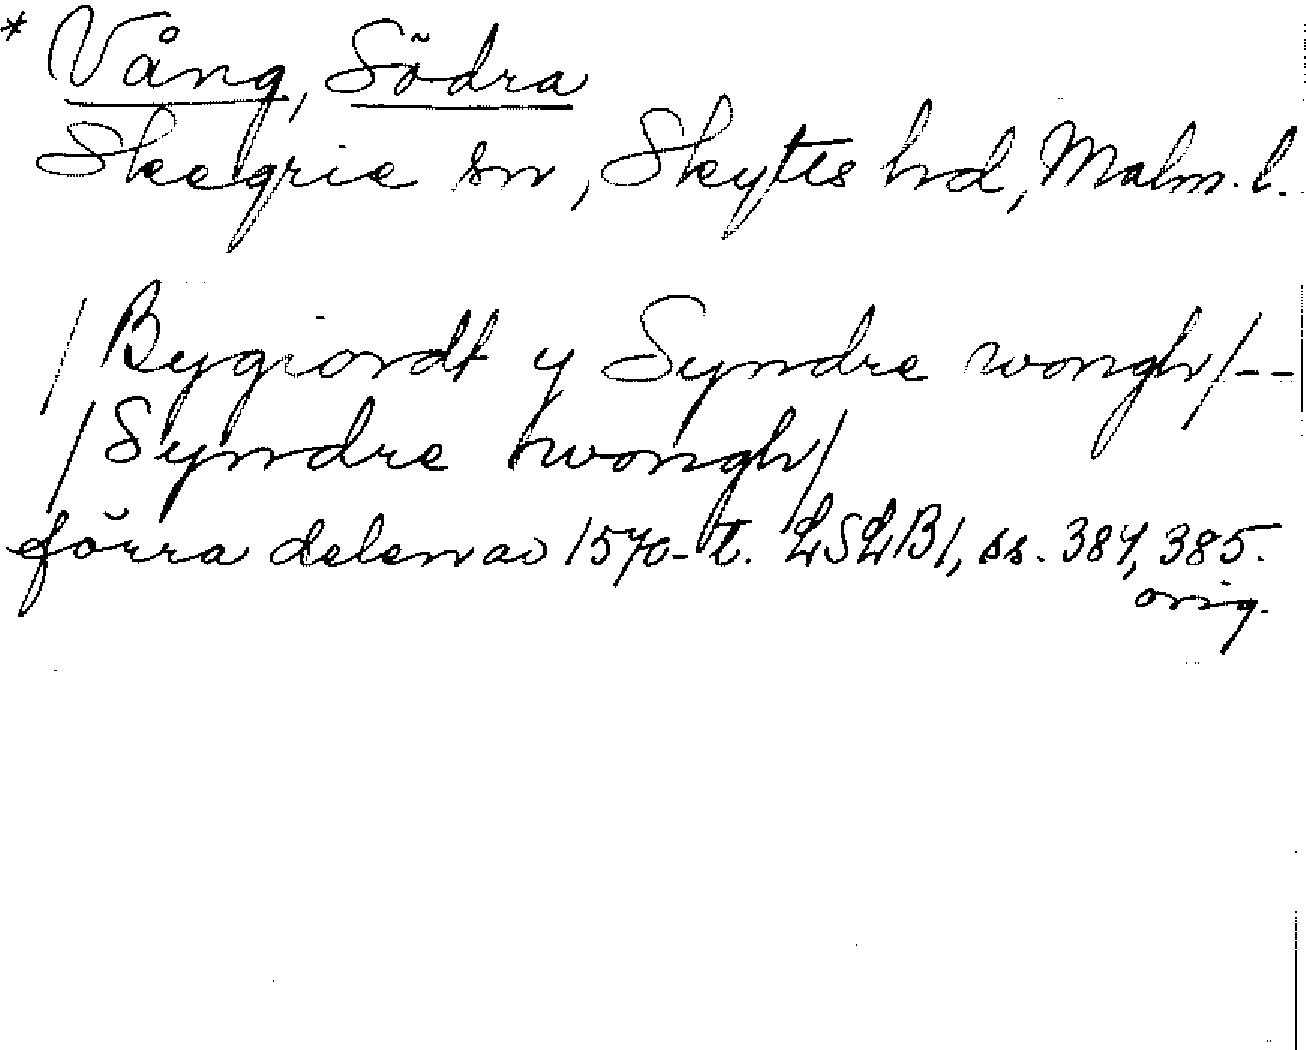 * Vång, Södra
Skegrie sn, Skytts hd, Malm. l.
/Bygiordt y Syndre wongh/--
/Syndre hwongh/
förra delen av 1570-t. LSLB1, ss. 384, 385.
orig.